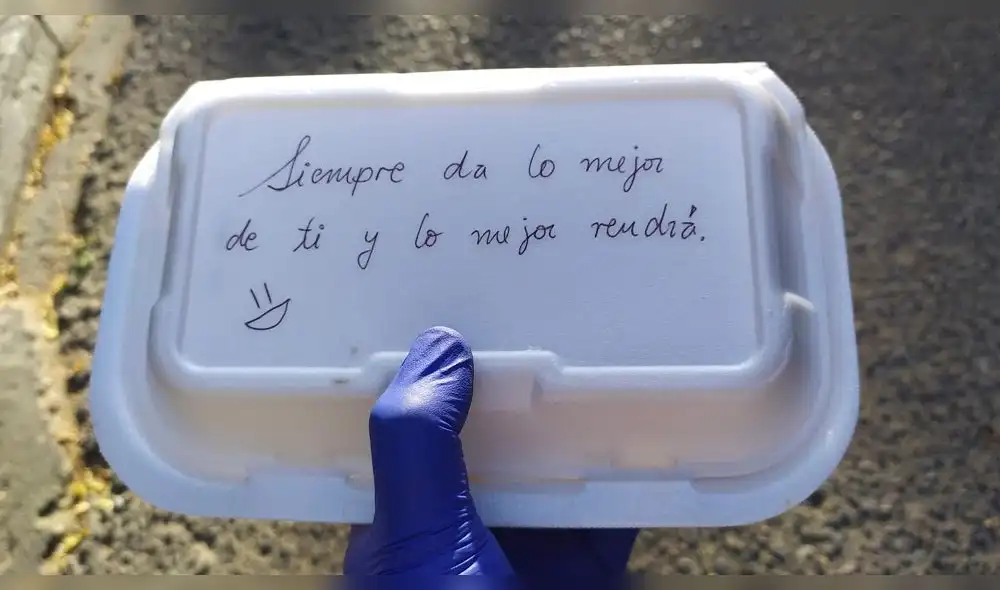 Siempre da lo mejor
de ti y lo mejor vendrá.